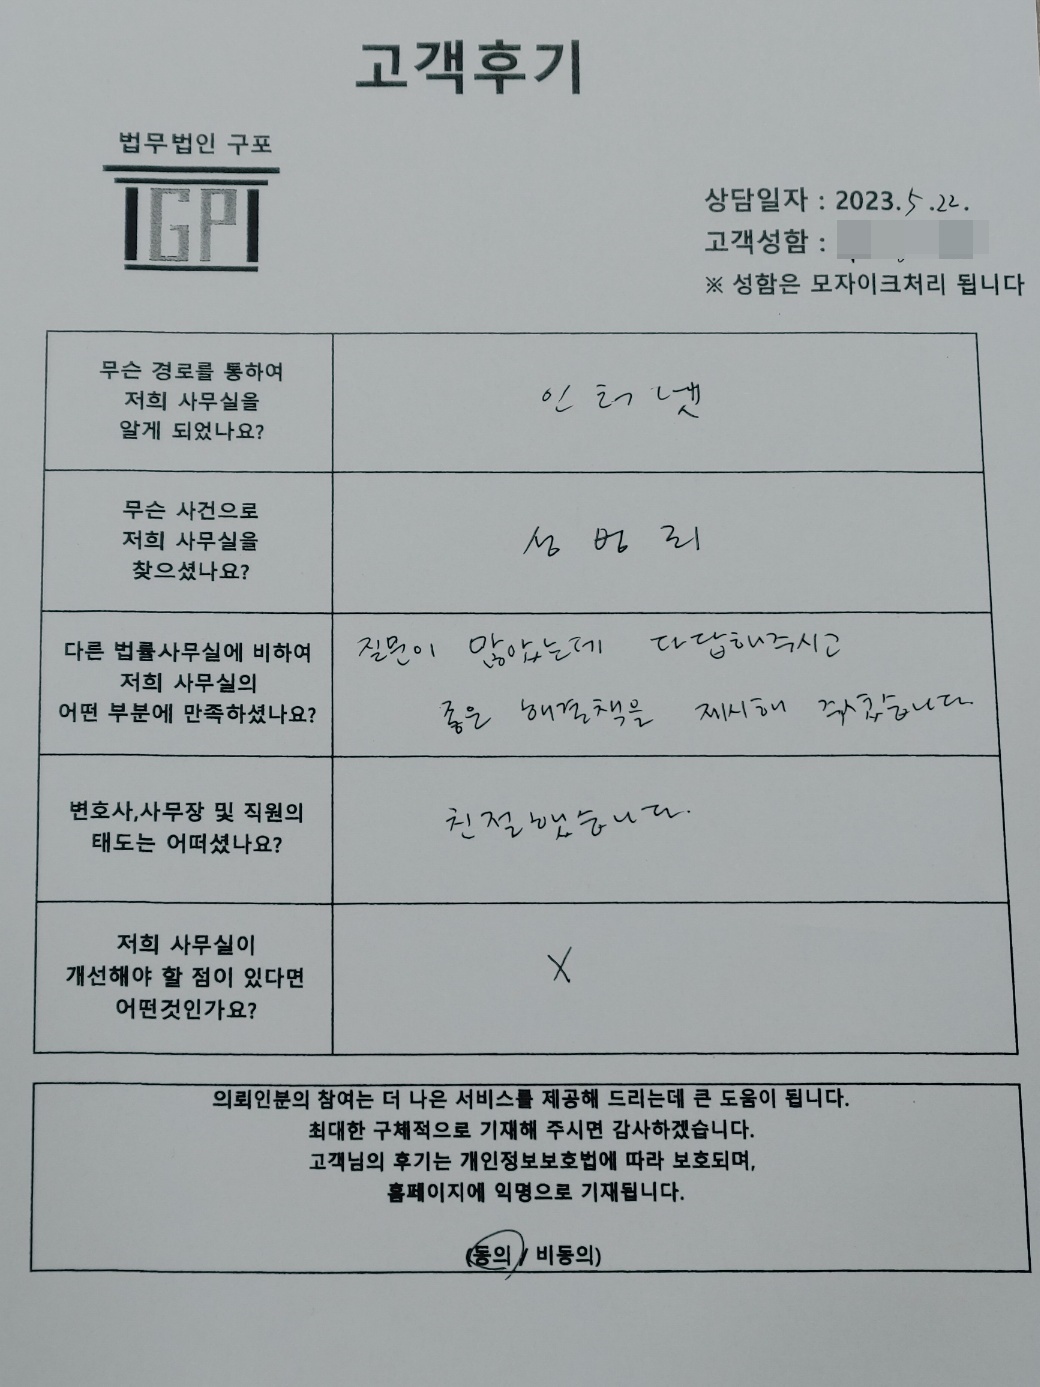 고객후기
법무법인 구포
GP
상담일자 : 2023.5.22.
고객성함 :
※ 성함은 모자이크처리 됩니다
무슨 경로를 통하여
저희 사무실을
알게 되었나요?
인터넷
무슨 사건으로
저희 사무실을
찾으셨나요?
성범죄
다른 법률사무실에 비하여
저희 사무실의
어떤 부분에 만족하셨나요?
질문이 많았는데 다 답해주시고
좋은 해결책을 제시해 주셨습니다
변호사,사무장 및 직원의
태도는 어떠셨나요?
친절했습니다.
저희 사무실이
개선해야 할 점이 있다면
어떤것인가요?
X
의뢰인분의 참여는 더 나은 서비스를 제공해 드리는데 큰 도움이 됩니다.
최대한 구체적으로 기재해 주시면 감사하겠습니다.
고객님의 후기는 개인정보보호법에 따라 보호되며,
홈페이지에 익명으로 기재됩니다.
(동의 / 비동의)